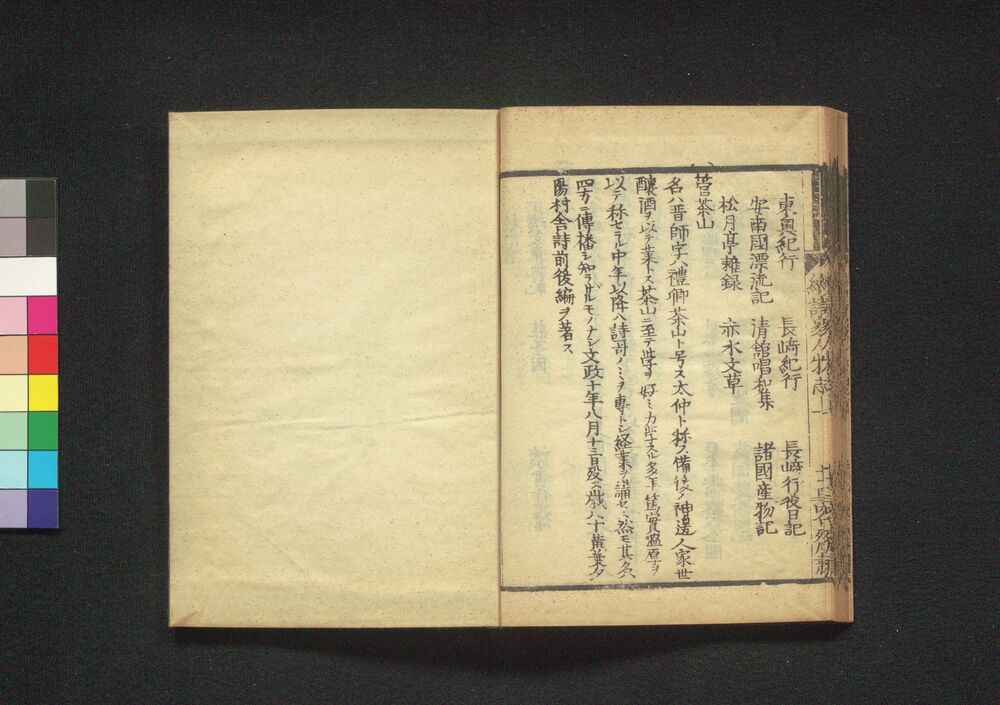 東奥紀行 長﨑紀行 長﨑行役日記
安南國漂流記 清舘唱和集 諸國産物記
松月亭雜録 赤水文草
菅茶山
名ハ晋師字ハ禮卿茶山ト号ス太仲ト称ス備後ノ神邉人家世
釀酒ヲ以テ業トス茶山ニ至テ学ヲ好ミ力学スル多年篤實温厚ヲ
以テ称セラル中年以降ハ詩哥ノミヲ専トシ経業ヲ誦セス然モ其名
四方ニ傳播シ知ラザルモノナシ文政十年八月十三日歿ス歳八十黄葉夕
陽村舎詩前後編ヲ著ス
續諸家人物志 上